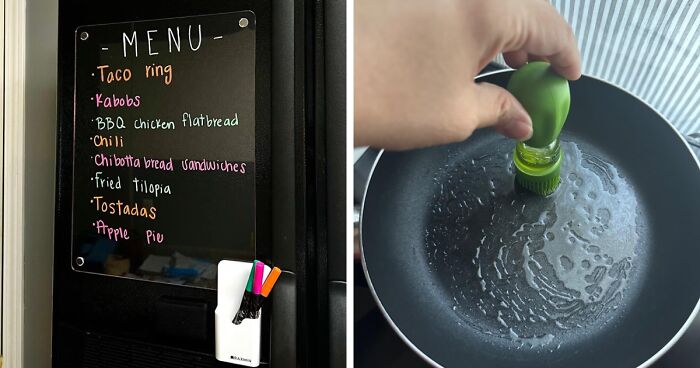 - MENU -
· Taco ring
· Kabobs
· BBQ chicken flatbread
· Chili
· Chibotta bread sandwiches
· Fried tilopia
· Tostadas
· Apple pie